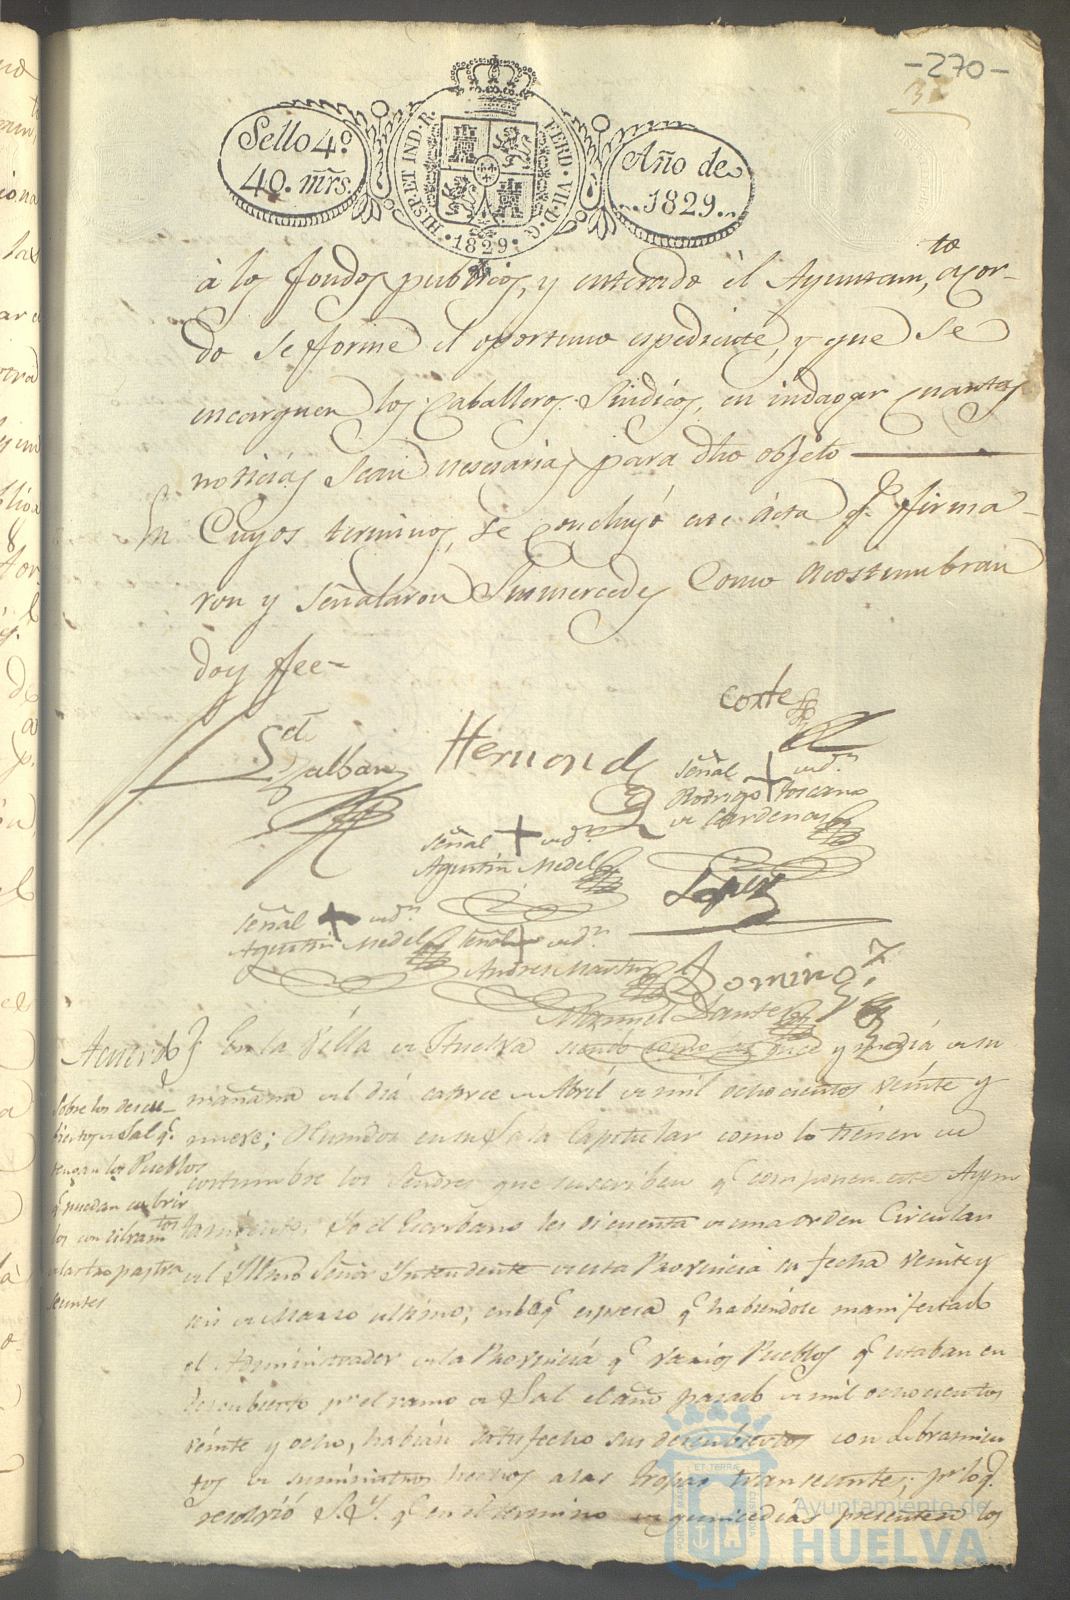 -270-
Sello 4º
40. mrs.
HISP. ET IND. R.
FERD. VII. D. G.
1829
Año de
1829
à los fondos publicos, y enterado él Ayuntam.to acor-
do se forme el oportuno espediente, y que se
encarguen los Caballeros Sindicos, en indagar quantas
noticias sean necesarias para dho objeto
En Cuyos terminos, se concluyó este ácta q.e firma-
ron y señalaron Susmercedes como acostumbran
doy fee-
Cortes
Hernond
señal + de
Rodrigo Toscano
de Cardenas
señal + de
Agustin Medel
Lopez
señal + de
Agustin Medel
señal + de
Andres Martin
Doming.z
Manuel Dante
Acuerdo
Sobre los descu-
biertos de Sal q.e
tengan los Pueblos
q.e puedan cubrir
los con libram.tos
a las tropas tran
seuntes
En la Villa de Huelva siendo como de once y media de su
mañana del dia catorce de Abril de mil ochocientos veinte y
nueve; Reunidos en su Sala Capitular como lo tienen de
costumbre los Señores que suscriben q.e componen este Ayun
tamiento, Yo el Escribano les di cuenta de una orden Circular
del Yllmo Señor Yntendente de esta Provincia su fecha veinte y
seis de Marzo ultimo; en la q.e espresa q.e habiendole manifestado
el Administrador de la Provincia q.e varios Pueblos q.e estaban en
descubierto p.r el ramo de Sal el año pasado de mil ochocientos
veinte y ocho, habian satisfecho sus descubiertos con Libramien
tos de suministros hechos a las tropas transeuntes; p.r lo q.e
resolvió S.S. q.e en el termino de quince dias presenten los
Ayuntamiento de
HUELVA